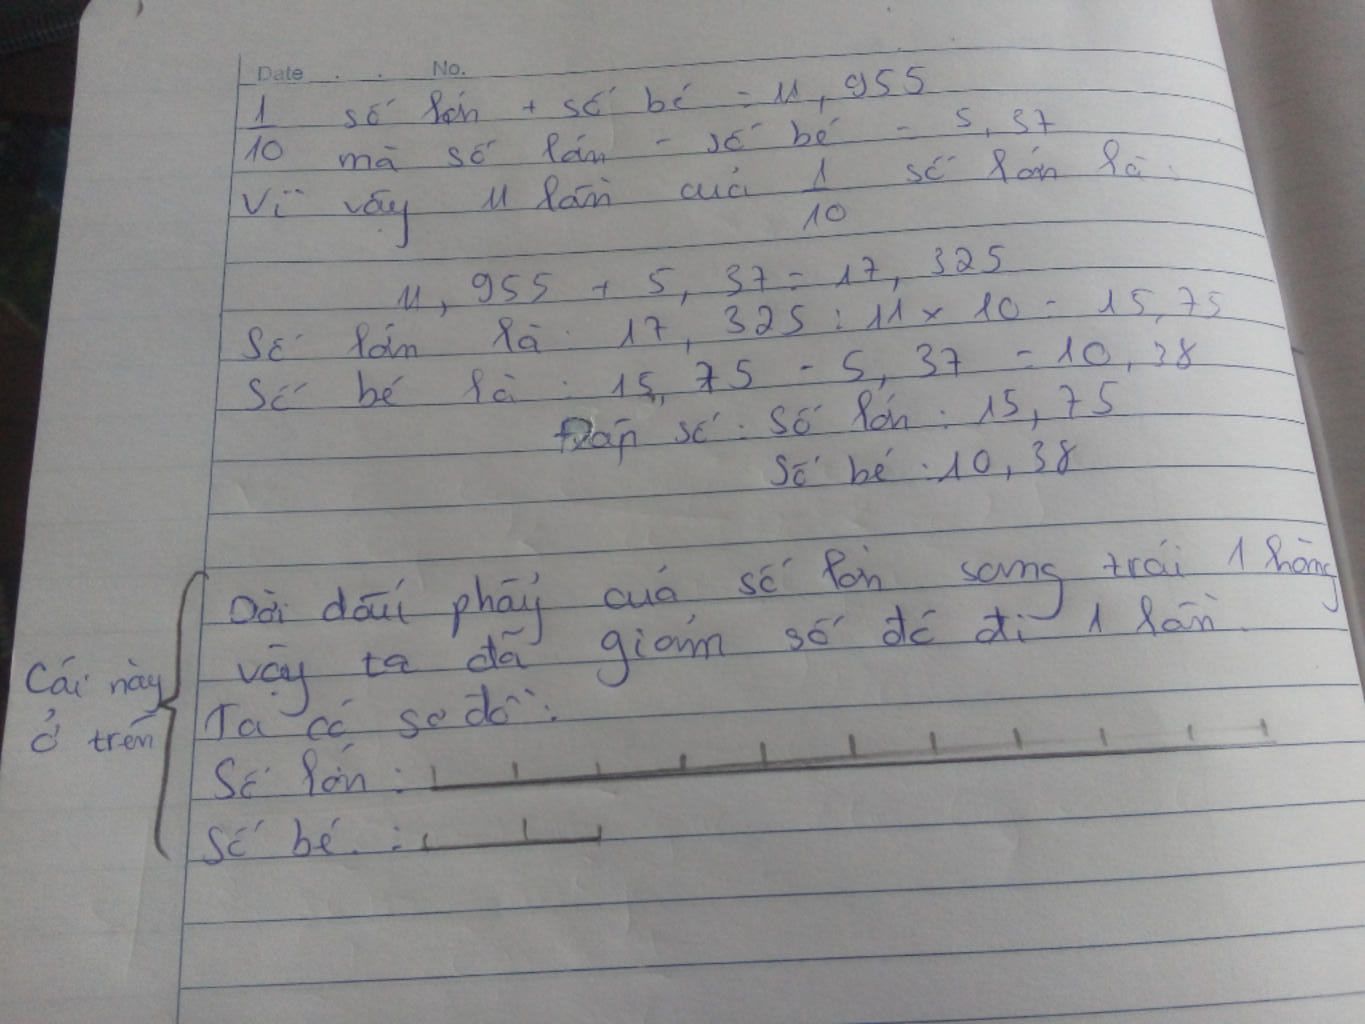 Date . . No.
1/10 số lớn + số bé = 11,955
mà số lớn - số bé = 5,37
Vì vậy 11 lần của 1/10 số lớn là:
11,955 + 5,37 = 17,325
Số lớn là: 17,325 : 11 x 10 = 15,75
Số bé là: 15,75 - 5,37 = 10,38
Đáp số: Số lớn: 15,75
Số bé: 10,38
Dời dấu phẩy của số lớn sang trái 1 hàng
vậy ta đã giảm số đó đi 1 lần.
Cái này ở trên
Ta có sơ đồ:
Số lớn:
Số bé: